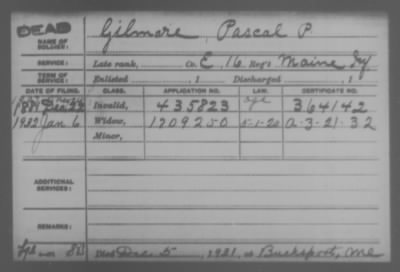 DEAD
NAME OF SOLDIER: Gilmore, Pascal P.
SERVICE: Late rank, Co. E, 16 Reg't Maine Inf
TERM OF SERVICE: Enlisted , 1 Discharged , 1
DATE OF FILING. CLASS. APPLICATION NO. LAW. CERTIFICATE NO.
1881 Invalid, 435823 364142
1922 Jan 6 Widow, 1209250 5-1-20 A-3-21-32
Minor,
ADDITIONAL SERVICES:
REMARKS:
Died Dec. 5, 1921, at Bucksport, Me